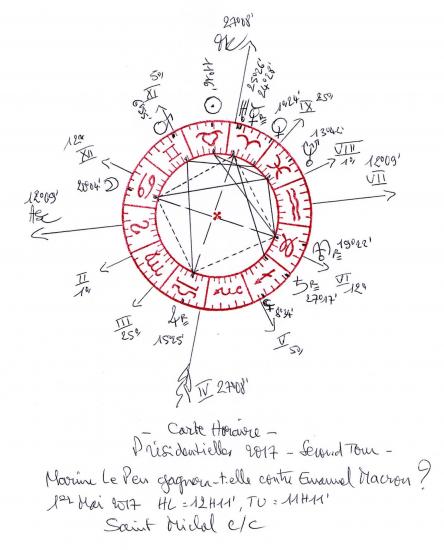 27°08'
11°16'
25°26'
24°28'
5°
XI
1°24'
IX 25°
13°42'
VIII
1°
12°
XII
2°04'
12°09'
ASC
12°09'
VII
19°22'
R
VI
12°
R
27°17'
II
1°
III
25°
R
15°25'
V
5°
IV 27°08'
- Carte Horaire -
Présidentielles 2017 - Second Tour -
Marine Le Pen gagnera-t-elle contre Emanuel Macron ?
1er Mai 2017 HL = 12H11', TU = 11H11'
Saint Michel c/c